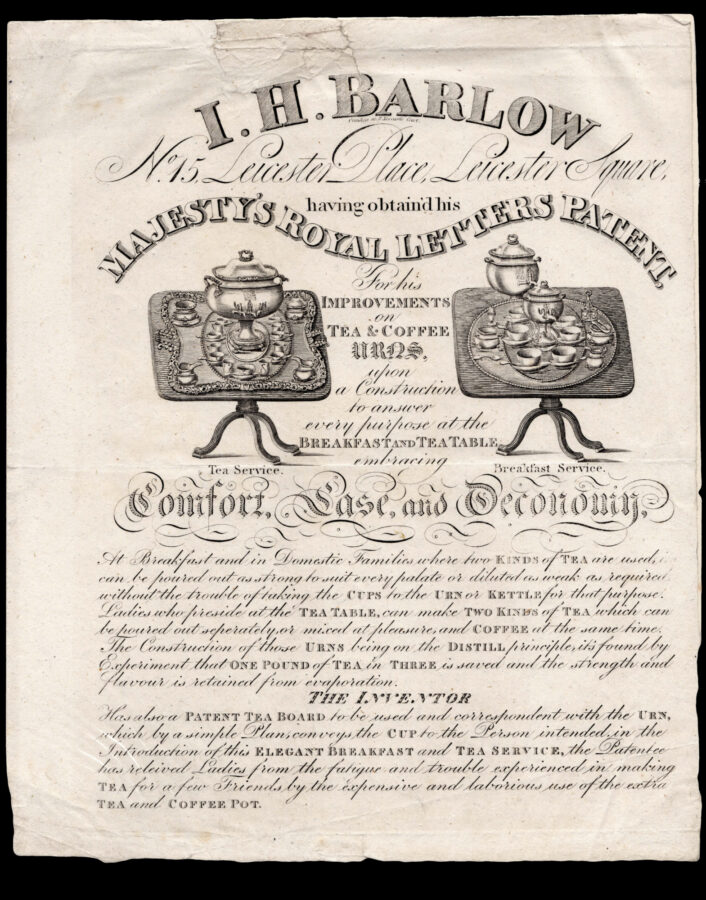 I. H. BARLOW
No. 15, Leicester Place, Leicester Square,
having obtain'd his
MAJESTY'S ROYAL LETTERS PATENT,
For his
IMPROVEMENTS
on
TEA & COFFEE
URNS,
upon
a Construction
to answer
every purpose at the
BREAKFAST AND TEA TABLE
embracing
Tea Service.
Breakfast Service.
Comfort, Ease, and Oeconomy,
At Breakfast and in Domestic Families where two KINDS of TEA are used,
can be poured out as strong to suit every palate or diluted as weak as required
without the trouble of taking the CUPS to the URN or KETTLE for that purpose.
Ladies who preside at the TEA TABLE, can make TWO KINDS of TEA which can
be poured out seperately, or mixed at pleasure, and COFFEE at the same time.
The Construction of those URNS being on the DISTILL principle, its found by
Experiment that ONE POUND of TEA in THREE is saved and the strength and
flavour is retained from evaporation.
THE INVENTOR
Has also a PATENT TEA BOARD to be used and correspondent with the URN,
which by a simple Plan, conveys the CUP to the Person intended, in the
Introduction of this ELEGANT BREAKFAST and TEA SERVICE, the Patentee
has releived Ladies from the fatigue and trouble experienced in making
TEA for a few Friends by the expensive and laborious use of the extra
TEA and COFFEE POT.